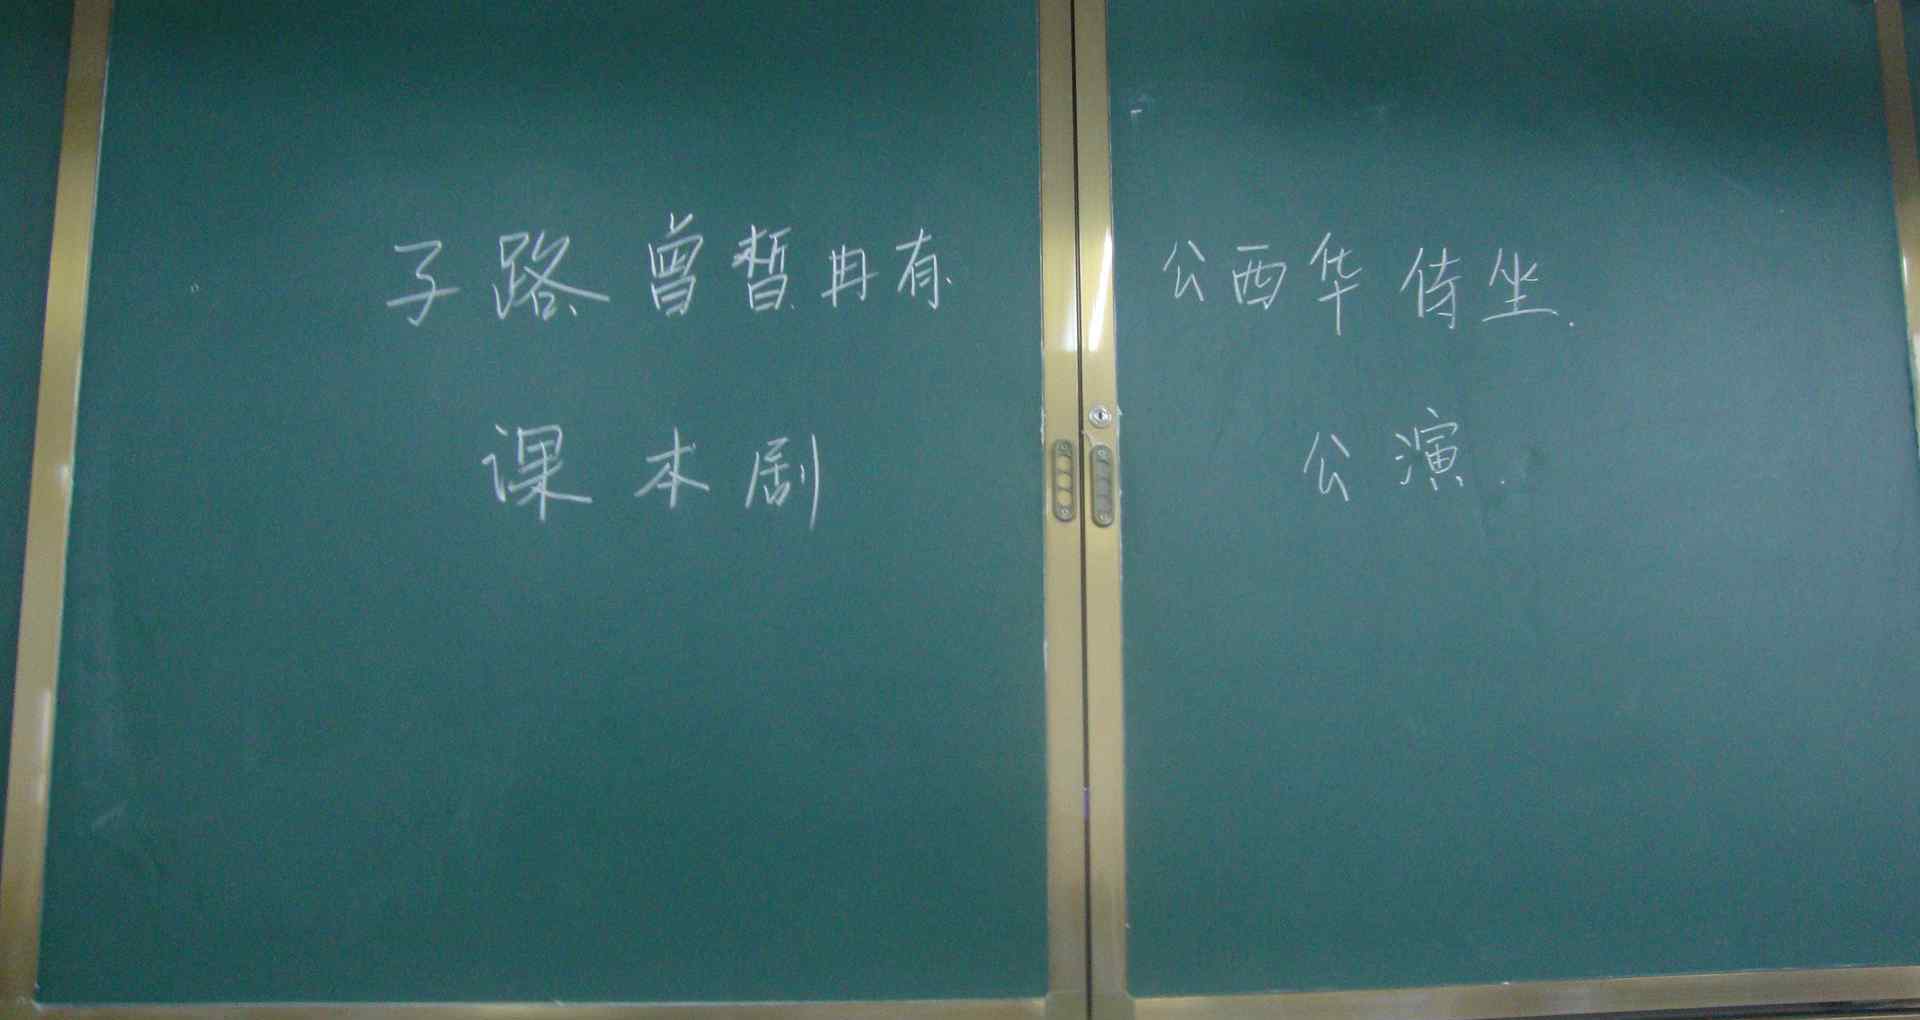 子路曾晳冉有 公西华侍坐.
课本剧 公演.